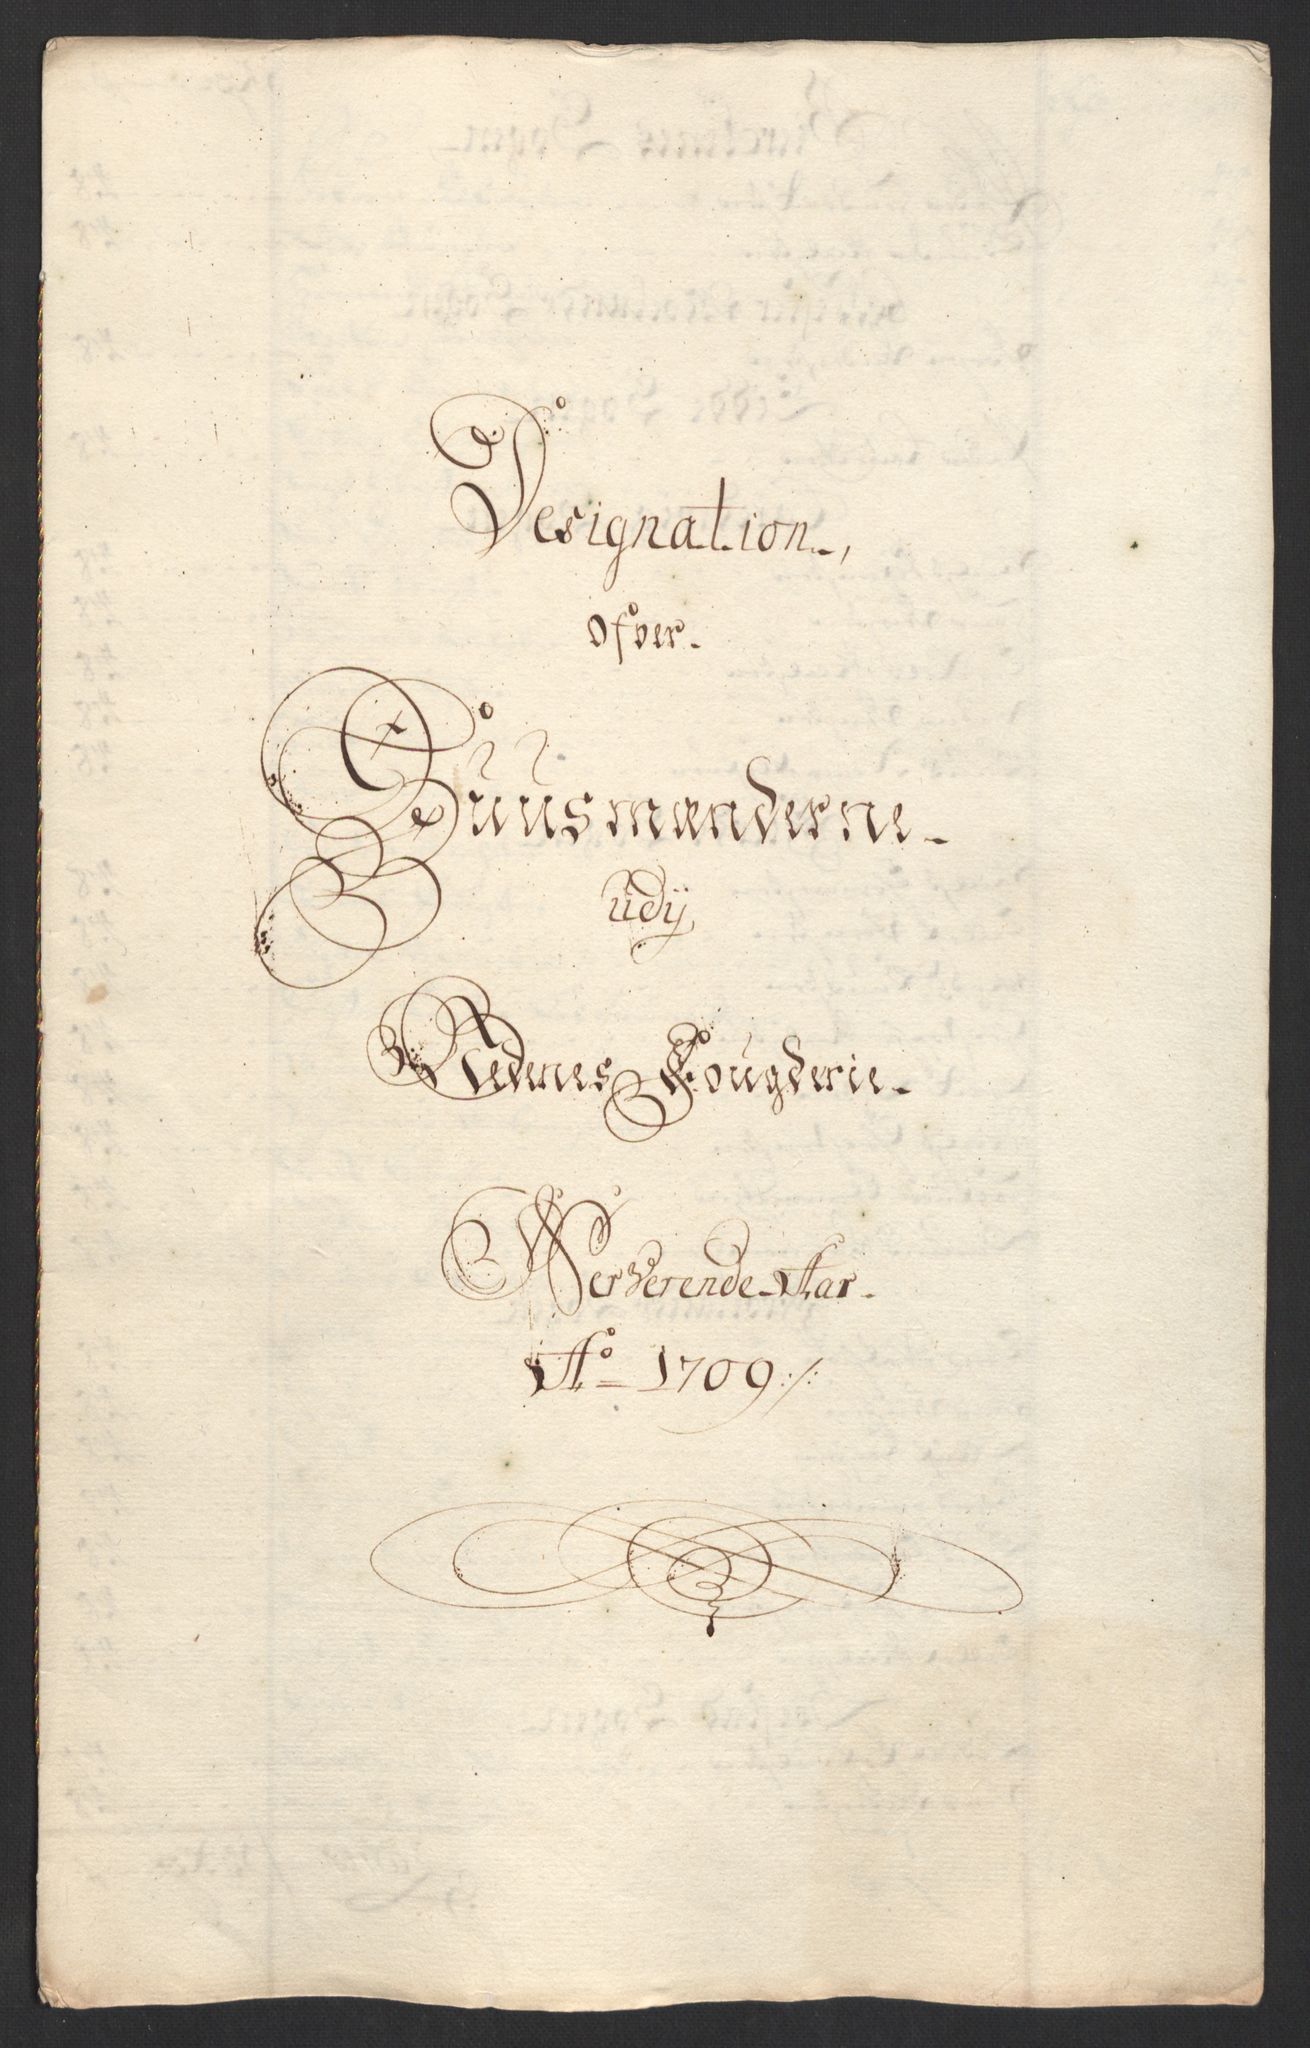 Designation,
ofver
Huusmænderne
udij
Nedenes Fougderie
Werverende Aar
Ao 1709